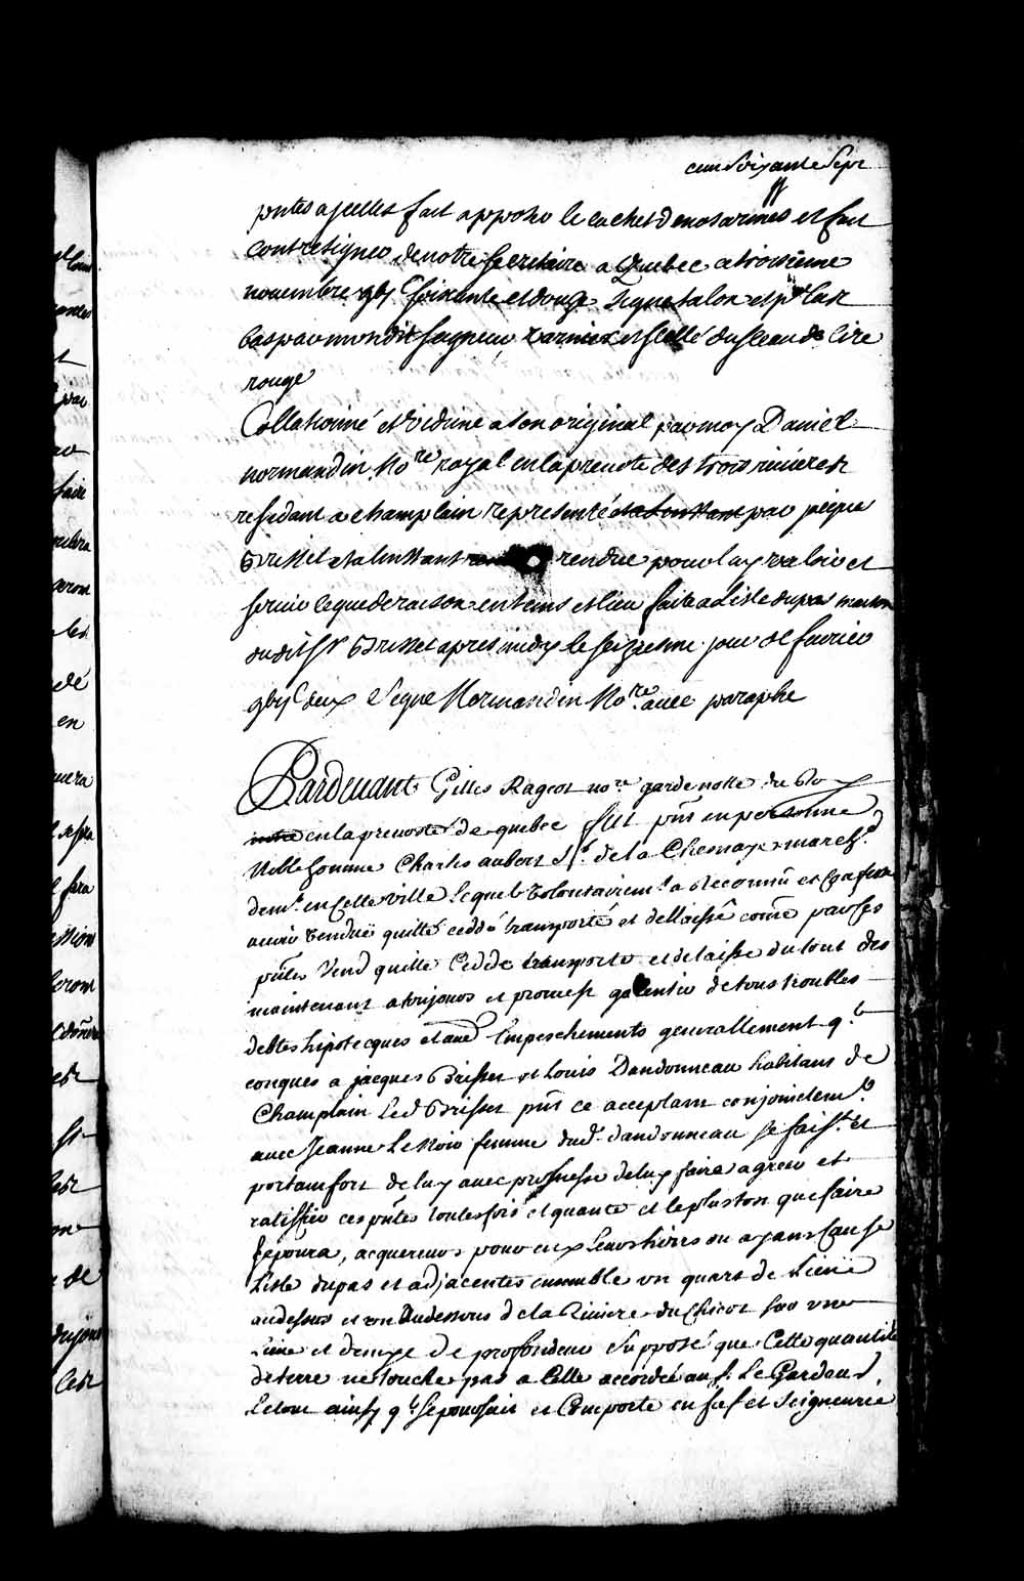 cent soixante sept
pntes a jcelles fait apposer le cachet de nos armes et fait
contresigner de notre secretaire a Quebec ce troisieme
novembre gbjc soixante et douze Signe talon et plus
bas par mondit seigneur varnier et scellé du sceau de Cire
rouge
Collationné et vidimé a son original par moy Daniel
normandin No.re royal en la prevoté des trois rivieres
residant a champlain represente par jacque
Brisset et a linstant rendue pour luy valoir et
servir ce que de raison en tems et lieu faite a Lisle dupas maison
dudit Sr Brisset apres midy le seiziesme jour de fevrier
gbijc deux Signe Normandin No.re avec paraphe
Pardevant Gilles Rageot no.re gardenotte du Roy
en la prevosté de quebec fut pnt en personne
Noble homme Charles aubert Sr. de la Chesnaye march.d
dem.t en cette ville Lequel volontairem.t a reconnu et confessé
avoir venduë quitté ceddé transporté et dellaissé come par ces
pntes vend quitte Cedde transporte et delaisse du tout des
maintenant a toujours et promest garentir de tous troubles
debtes hipotecques et autres Empeschements generallement q.l
conques a jacques Brisset et Louis Dandonneau habitans de
Champlain Led Brisset pnt ce acceptant conjoinctem.t
avec Jeanne Le Noir femme dud.t dandonneau se fais.t et
portant fort de luy avec promesse de luy faire agreer et
ratiffier ces pntes toutesfois et quante et le plustost que faire
se poura, acquereurs pour eux Leurs hoirs ou ayans Cause
Lisle dupas et adjacentes ensemble un quart de Lieüe
au dessus et un audessous de la Riviere du Chicot sur une
Lieue et demye de profondeur Supposé que Cette quantité
de terre ne touche pas a Celle accordée au Sr. Le Gardeur
Le tout ainsy q.l se poursuit et Comporte en fief et Seigneurie